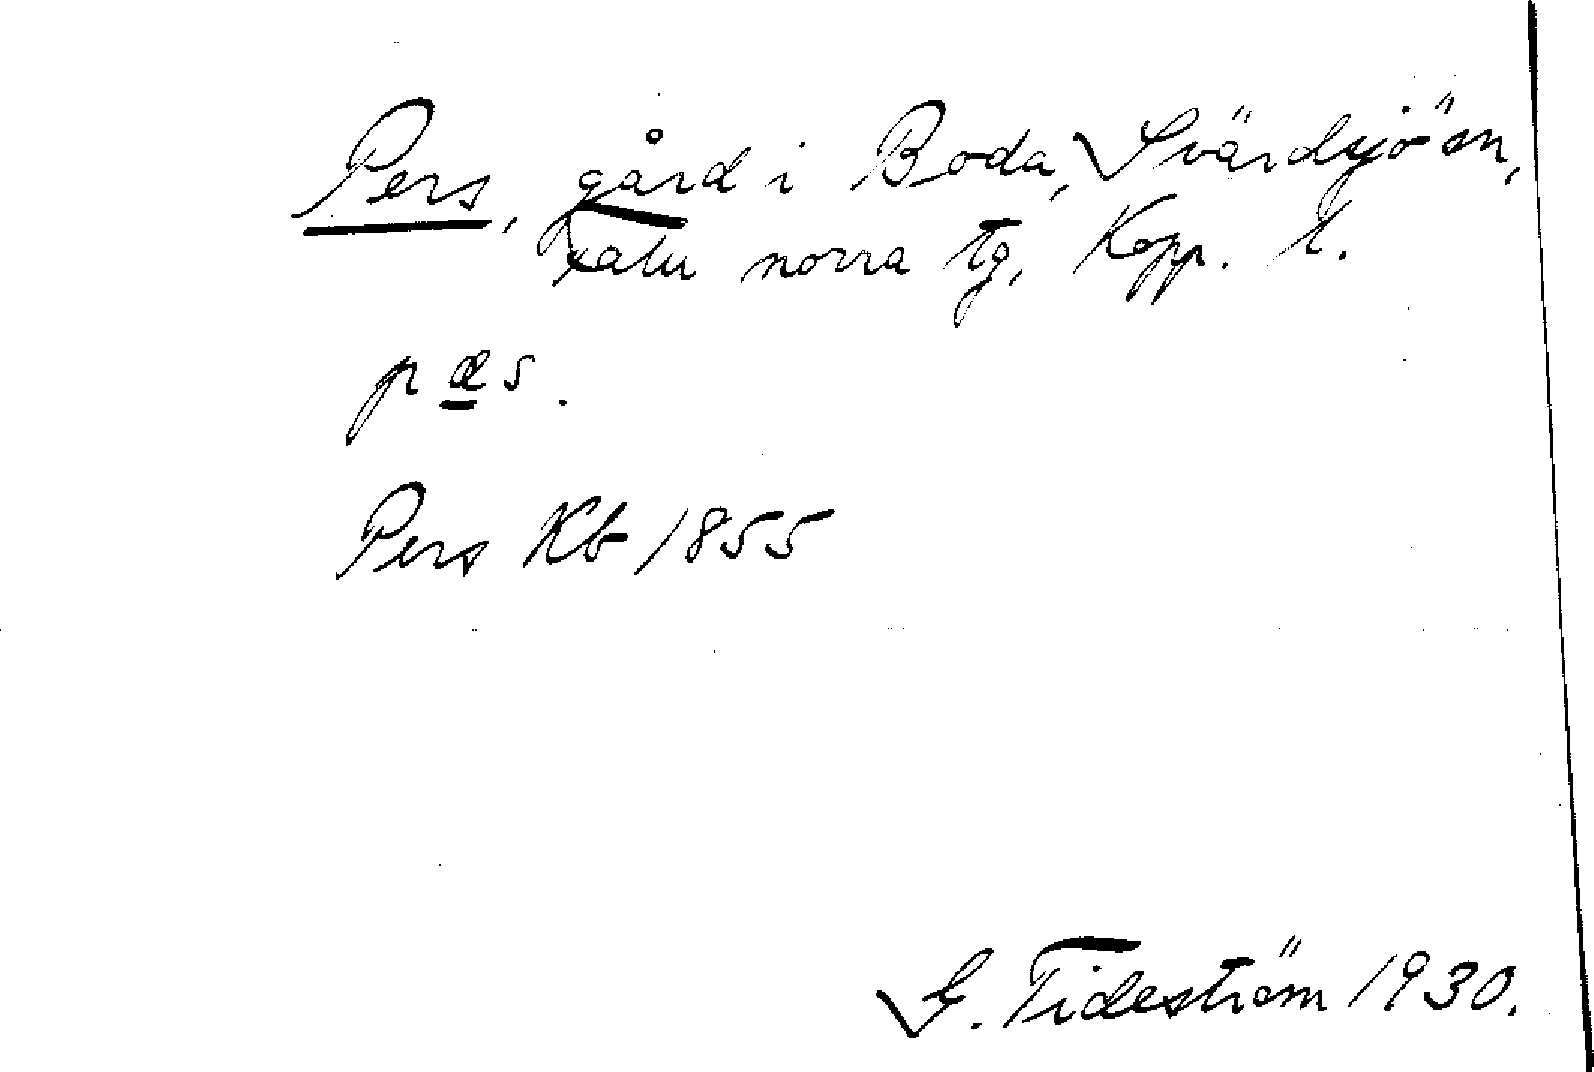 Pers, gård i Boda, Svärdsjö sn,
Falu norra tg, Kopp. l.
pæs.
Pers Kb 1855
G. Tideström 1930.